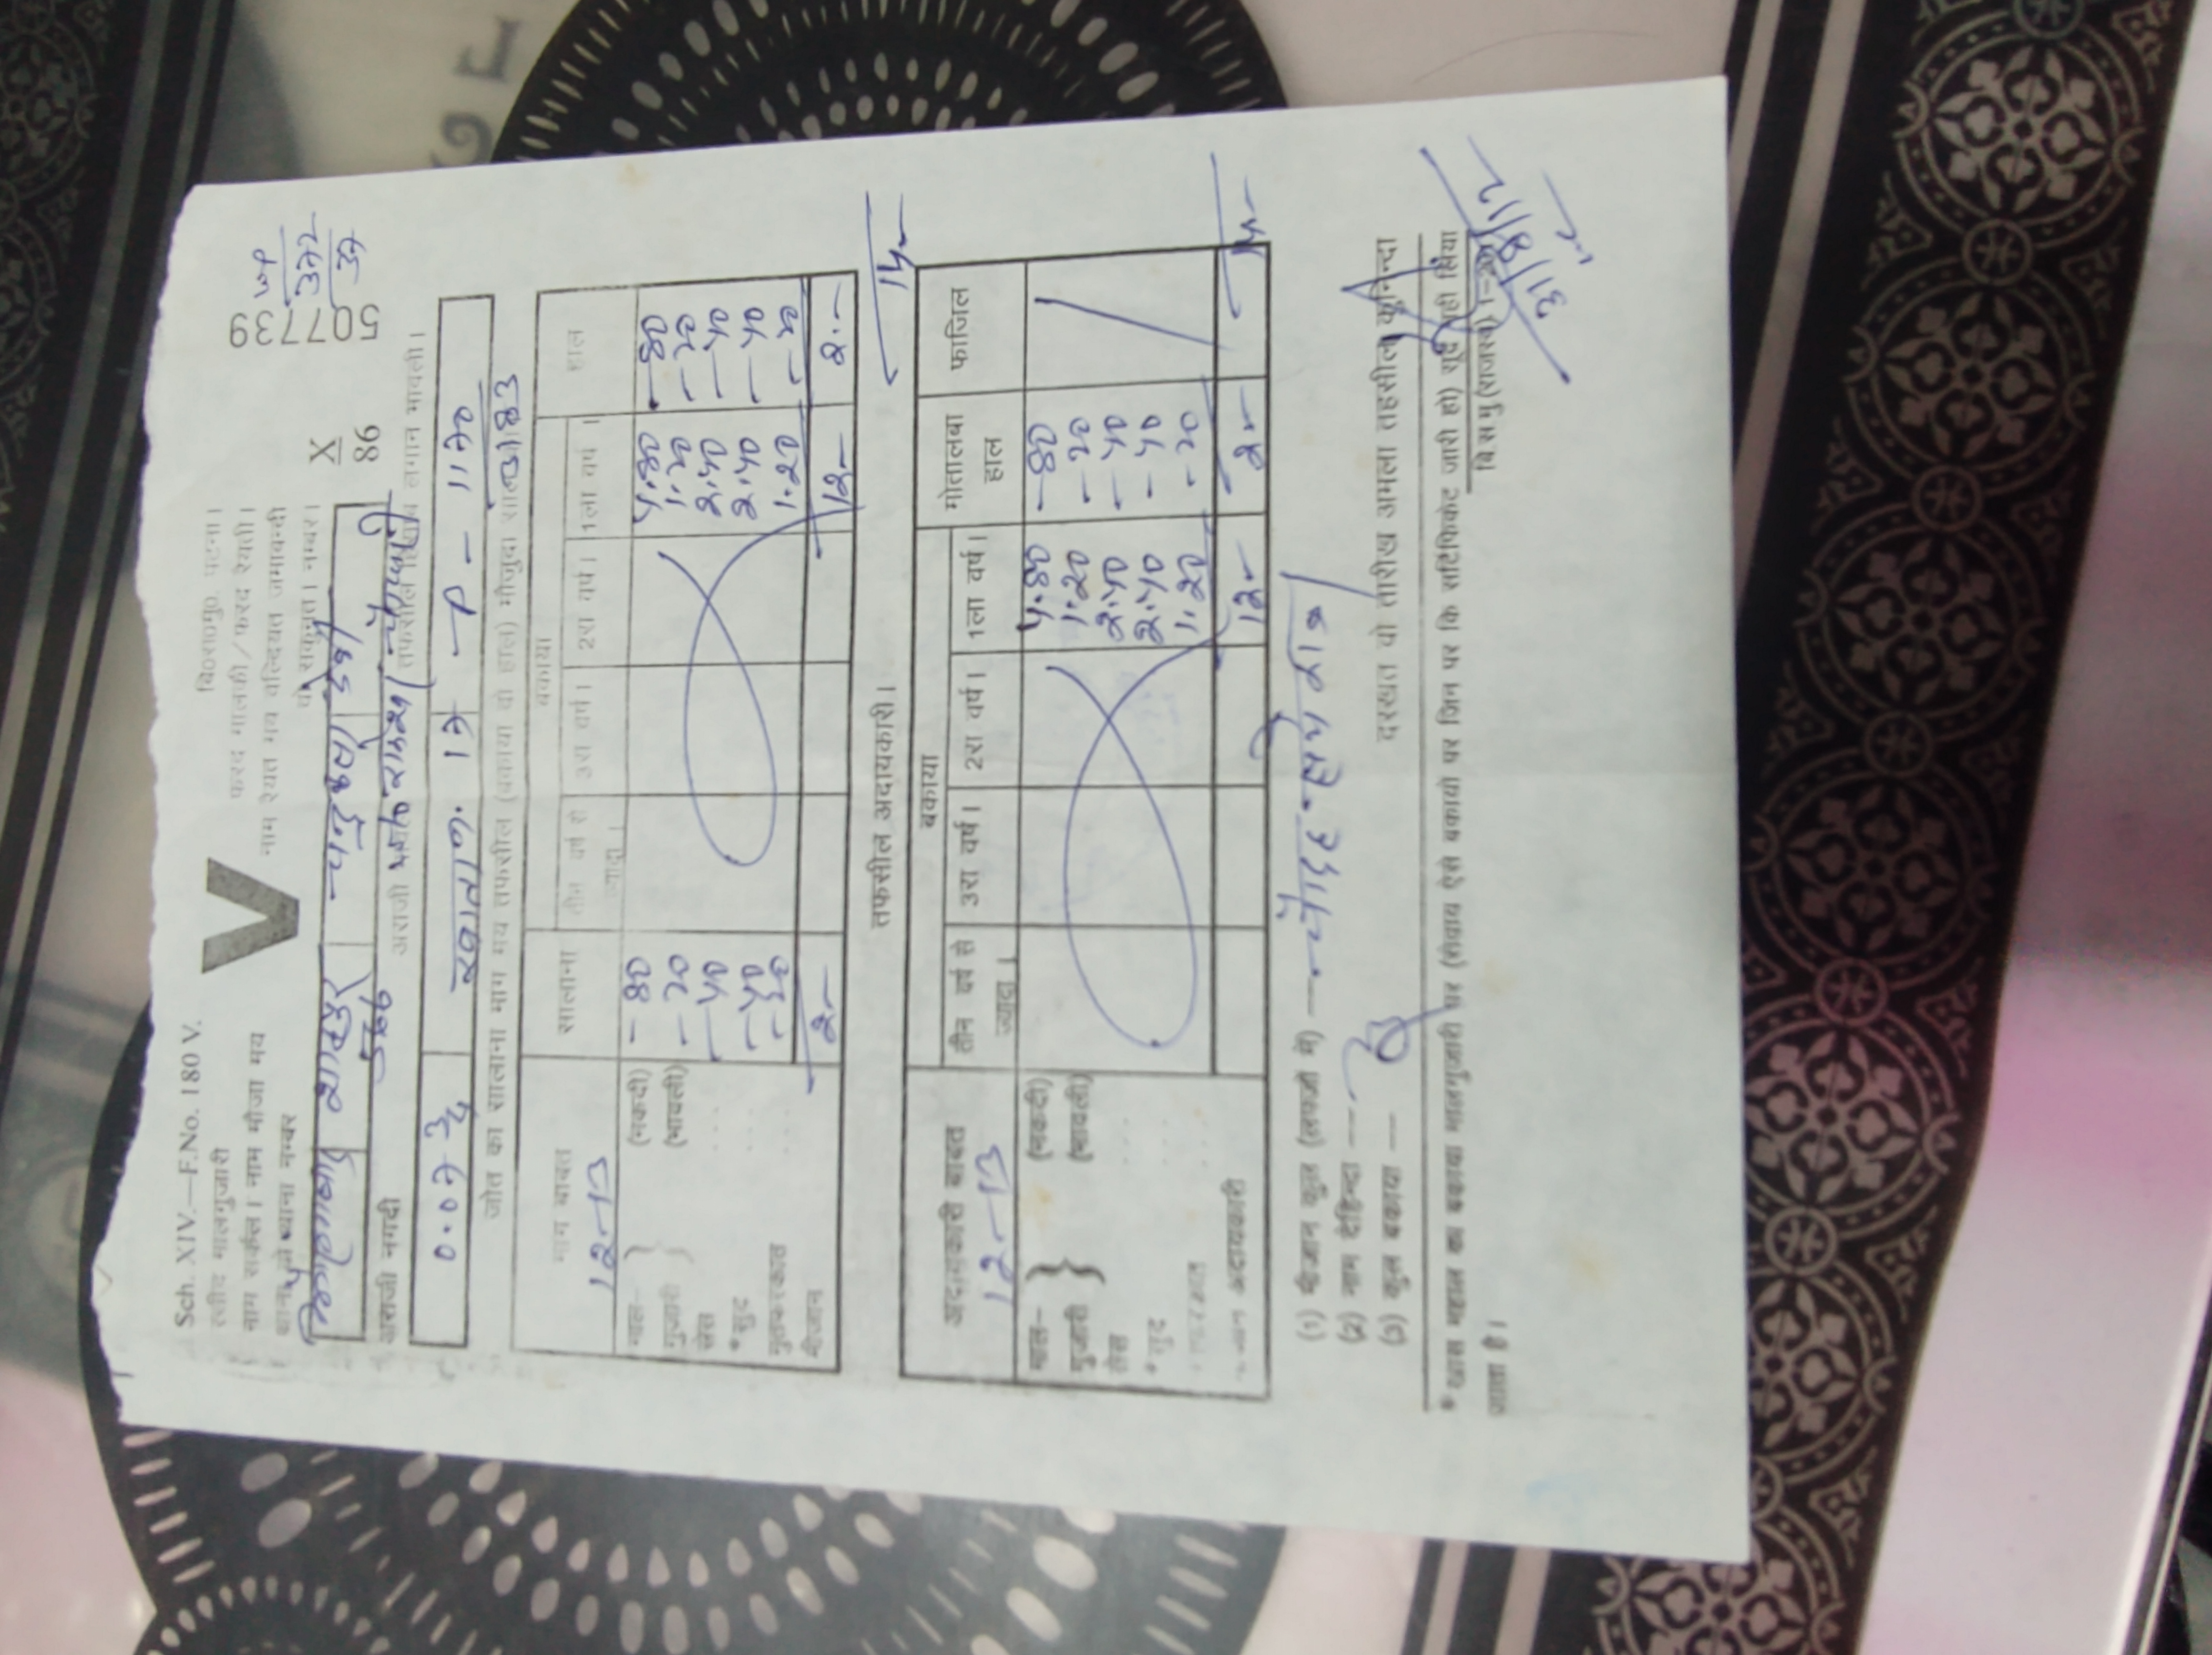 Sch. XIV.—F.No. 180 V.
रसीद मालगुजारी
नाम सर्कल। नाम मौजा मय
थाना वो थाना नम्बर
V
बि0स0मु0. पटना।
फरद मालकी/फरद रैयती।
नाम रैयत मय वल्दियत जमाबन्दी
वो सकुनत। नम्बर।
X
86
5077739
372
37
शाहपुर चन्द्रकला देवी
566
अराजी नगदी अराजी राकेश तफसील हिसाब लगान भावली।
0.07 3/4 खाता न. 17 P - 1170
3183
जोत का सालाना माग मय तफसील (बकाया वो हाल) मौजुदा
माग बाबत सालाना बकाया हाल
तीन वर्ष से ज्यादा। 3रा वर्ष। 2रा वर्ष। 1ला वर्ष।
12-13
माल- (नकदी) -80 4.80 -80
गुजारी (भावली) -20 1.20 -20
सेस .... -40 2.40 -40
*सुद .... -40 2.40 -40
मुतफरकात -20 1.20 -20
मीजान 2- 12- 2.-
14-
तफसील अदायकारी।
अदायकारी बाबत बकाया मोतालबा हाल फाजिल
तीन वर्ष से ज्यादा। 3रा वर्ष। 2रा वर्ष। 1ला वर्ष।
12-13
माल- (नकदी) 4.80 -80
गुजारी (भावली) 1.20 -20
सेस .... 2.40 -40
*सुद .... 2.40 -40
1.20 -20
अदायकारी 12- 2- 14-
(1) मीजान कुल (लफजों में) — चौदह रूपये मात्र
(2) नाम देहिन्दा —
(3) कुल बकाया —
दस्खत वो तारीख अमला तहसील कुनिन्दा
*खास महाल का बकाया मालगुजारी पर (सेवाय ऐसे बकायों पर जिन पर कि सर्टिफिकेट जारी हो) सूद नहीं लिया
जाता है।
बि.स.मु (राजस्व)
31/8/12